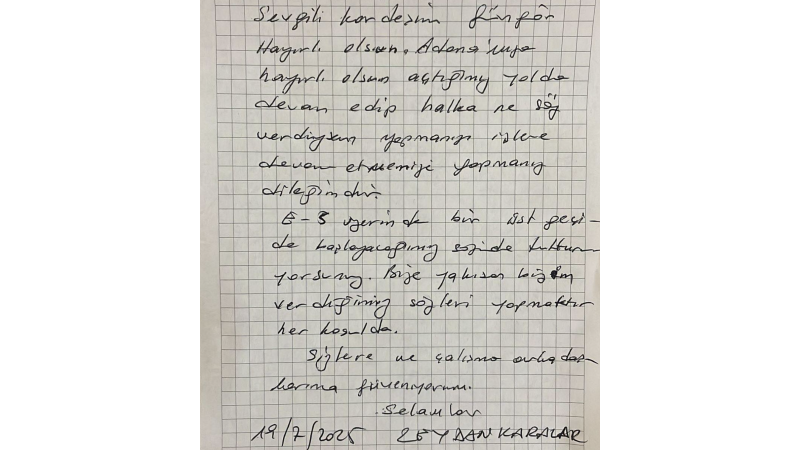 Sevgili kardeşim Güngör
Hayırlı olsun. Adana'mıza
hayırlı olsun açtığımız yolda
devam edip halka ne söz
verdiysen yapmanızı izlere
devam etmenizi yapmanız
dileğimdir.
E-5 üzerinde bir üst geçi-
de başlayacağımız sözünde tuttum
yorsunuz. Bize yakışan bizim
verdiğimiz sözleri yapmaktır
her koşulda.
Sizlere ve çalışma arkadaş-
larıma güveniyorum.
Selamlar
19/7/2025 ZEYDAN KARALAR